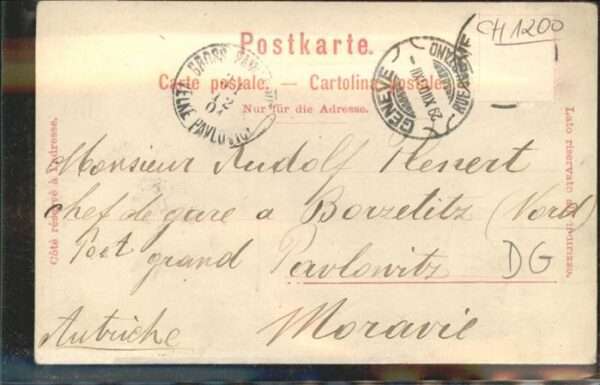 CH 1200
Postkarte.
Carte postale. — Cartolina postale.
Nur für die Adresse.
GENÈVE
VELKÉ PAVLOVICE
Côté réservé à l'adresse.
Lato riservato all'indirizzo.
Monsieur Rudolf Henert
chef de gare a Borzetitz (Nord)
Post grand Pavlowitz DG
Autriche Moravie